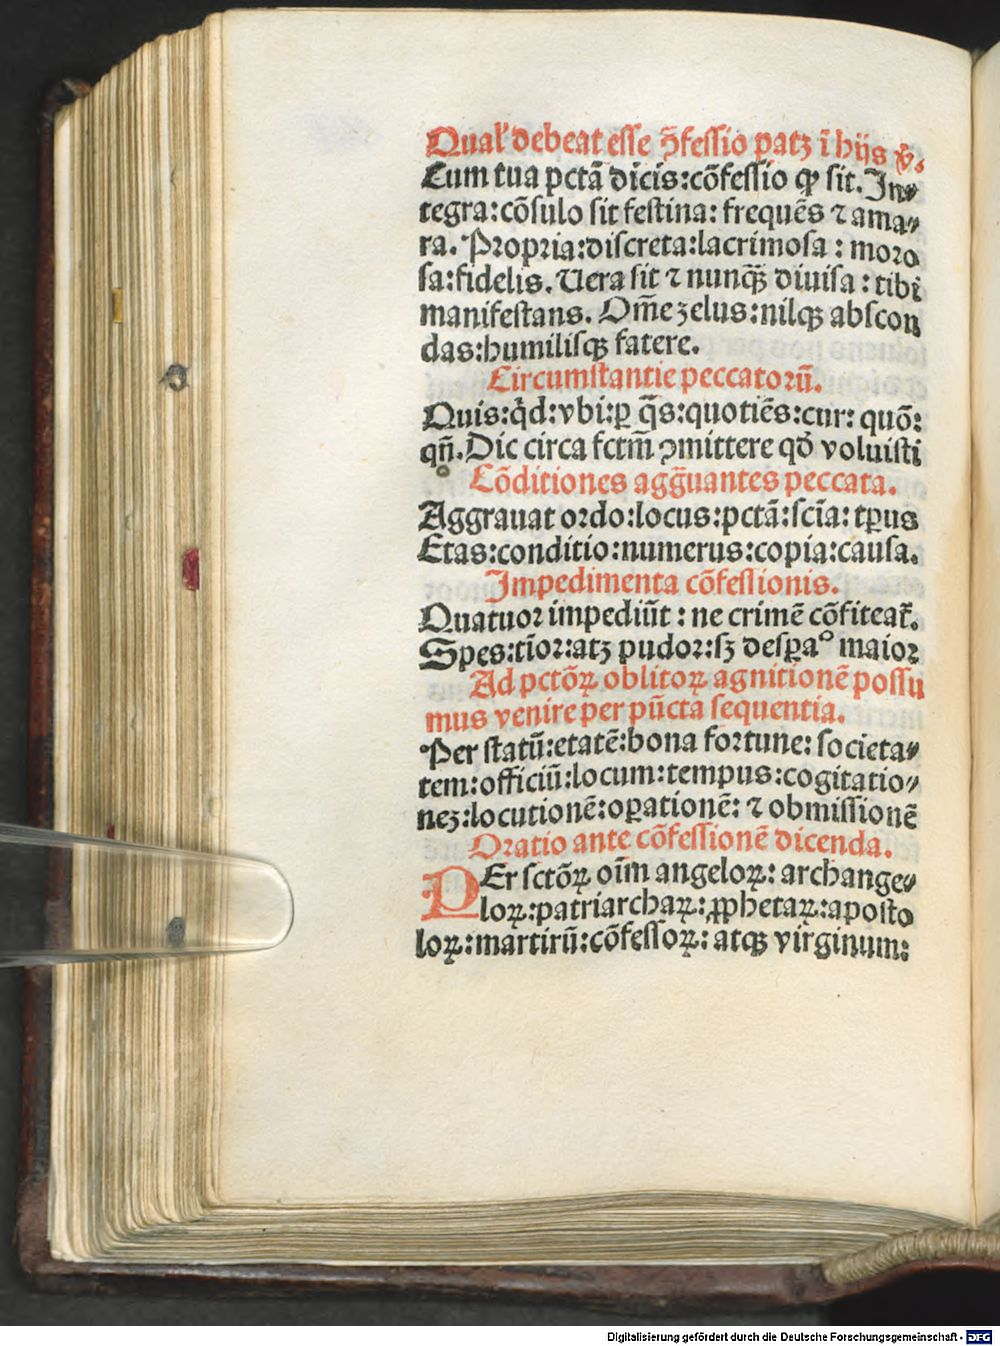 Qual' debeat esse ꝯ̃fessio patꝫ ĩ hijs v̄.
Cum tua pctã dicis:cõfessio ꝙ sit. In⸗
tegra:cõsulo sit festina: frequẽs ⁊ ama⸗
ra. Propria:discreta:lacrimosa: moro
sa:fidelis. Uera sit ⁊ nunqꝫ̃ diuisa: tibi
manifestans. Om̃e zelus:nilqꝫ abscon
das:humilisqꝫ fatere.
Circumstantie peccatorũ.
Quis:qͥd:vbi:ꝑ q̃s:quotiẽs:cur: quõ:
qñ. Dic circa fctm̃ ꝯmittere qđ voluisti
Cõditiones agg̃uantes peccata.
Aggrauat ordo:locus:pctã:scĩa: tp̱us
Etas:conditio:numerus:copia:causa.
Impedimenta cõfessionis.
Quatuor impediũt: ne crimẽ cõfiteat̃.
Spes:tĩor:atꝫ pudor:sꝫ desꝑaº maior
Ad pctõꝝ oblitoꝝ agnitionẽ possu
mus venire per pũcta sequentia.
Per statũ:etatẽ:bona fortune: societa⸗
tem:officiũ:locum:tempus:cogitatio⸗
neꝫ:locutionẽ:oꝑationẽ: ⁊ obmissionẽ
Oratio ante cõfessionẽ dicenda.
PEr sctõꝝ oĩm angeloꝝ: archange⸗
loꝝ:patriarchaꝝ:ꝓphetaꝝ:aposto
loꝝ:martirũ:cõfessoꝝ: atqꝫ virginum:
Digitalisierung gefördert durch die Deutsche Forschungsgemeinschaft - DFG